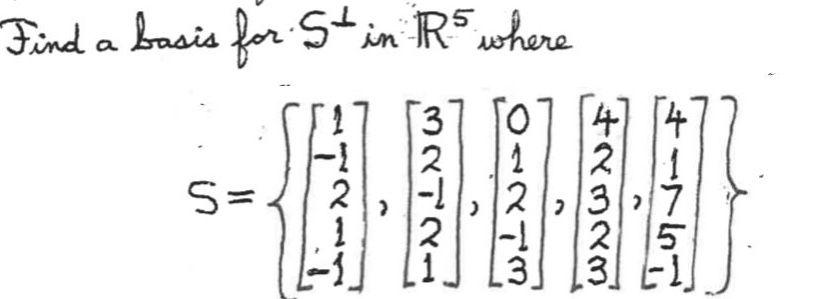 Find a basis for S⊥ in ℝ⁵ where
S = { [1 -1 2 1 -1], [3 2 -1 2 1], [0 1 2 -1 3], [4 2 3 2 3], [4 1 7 5 -1] }